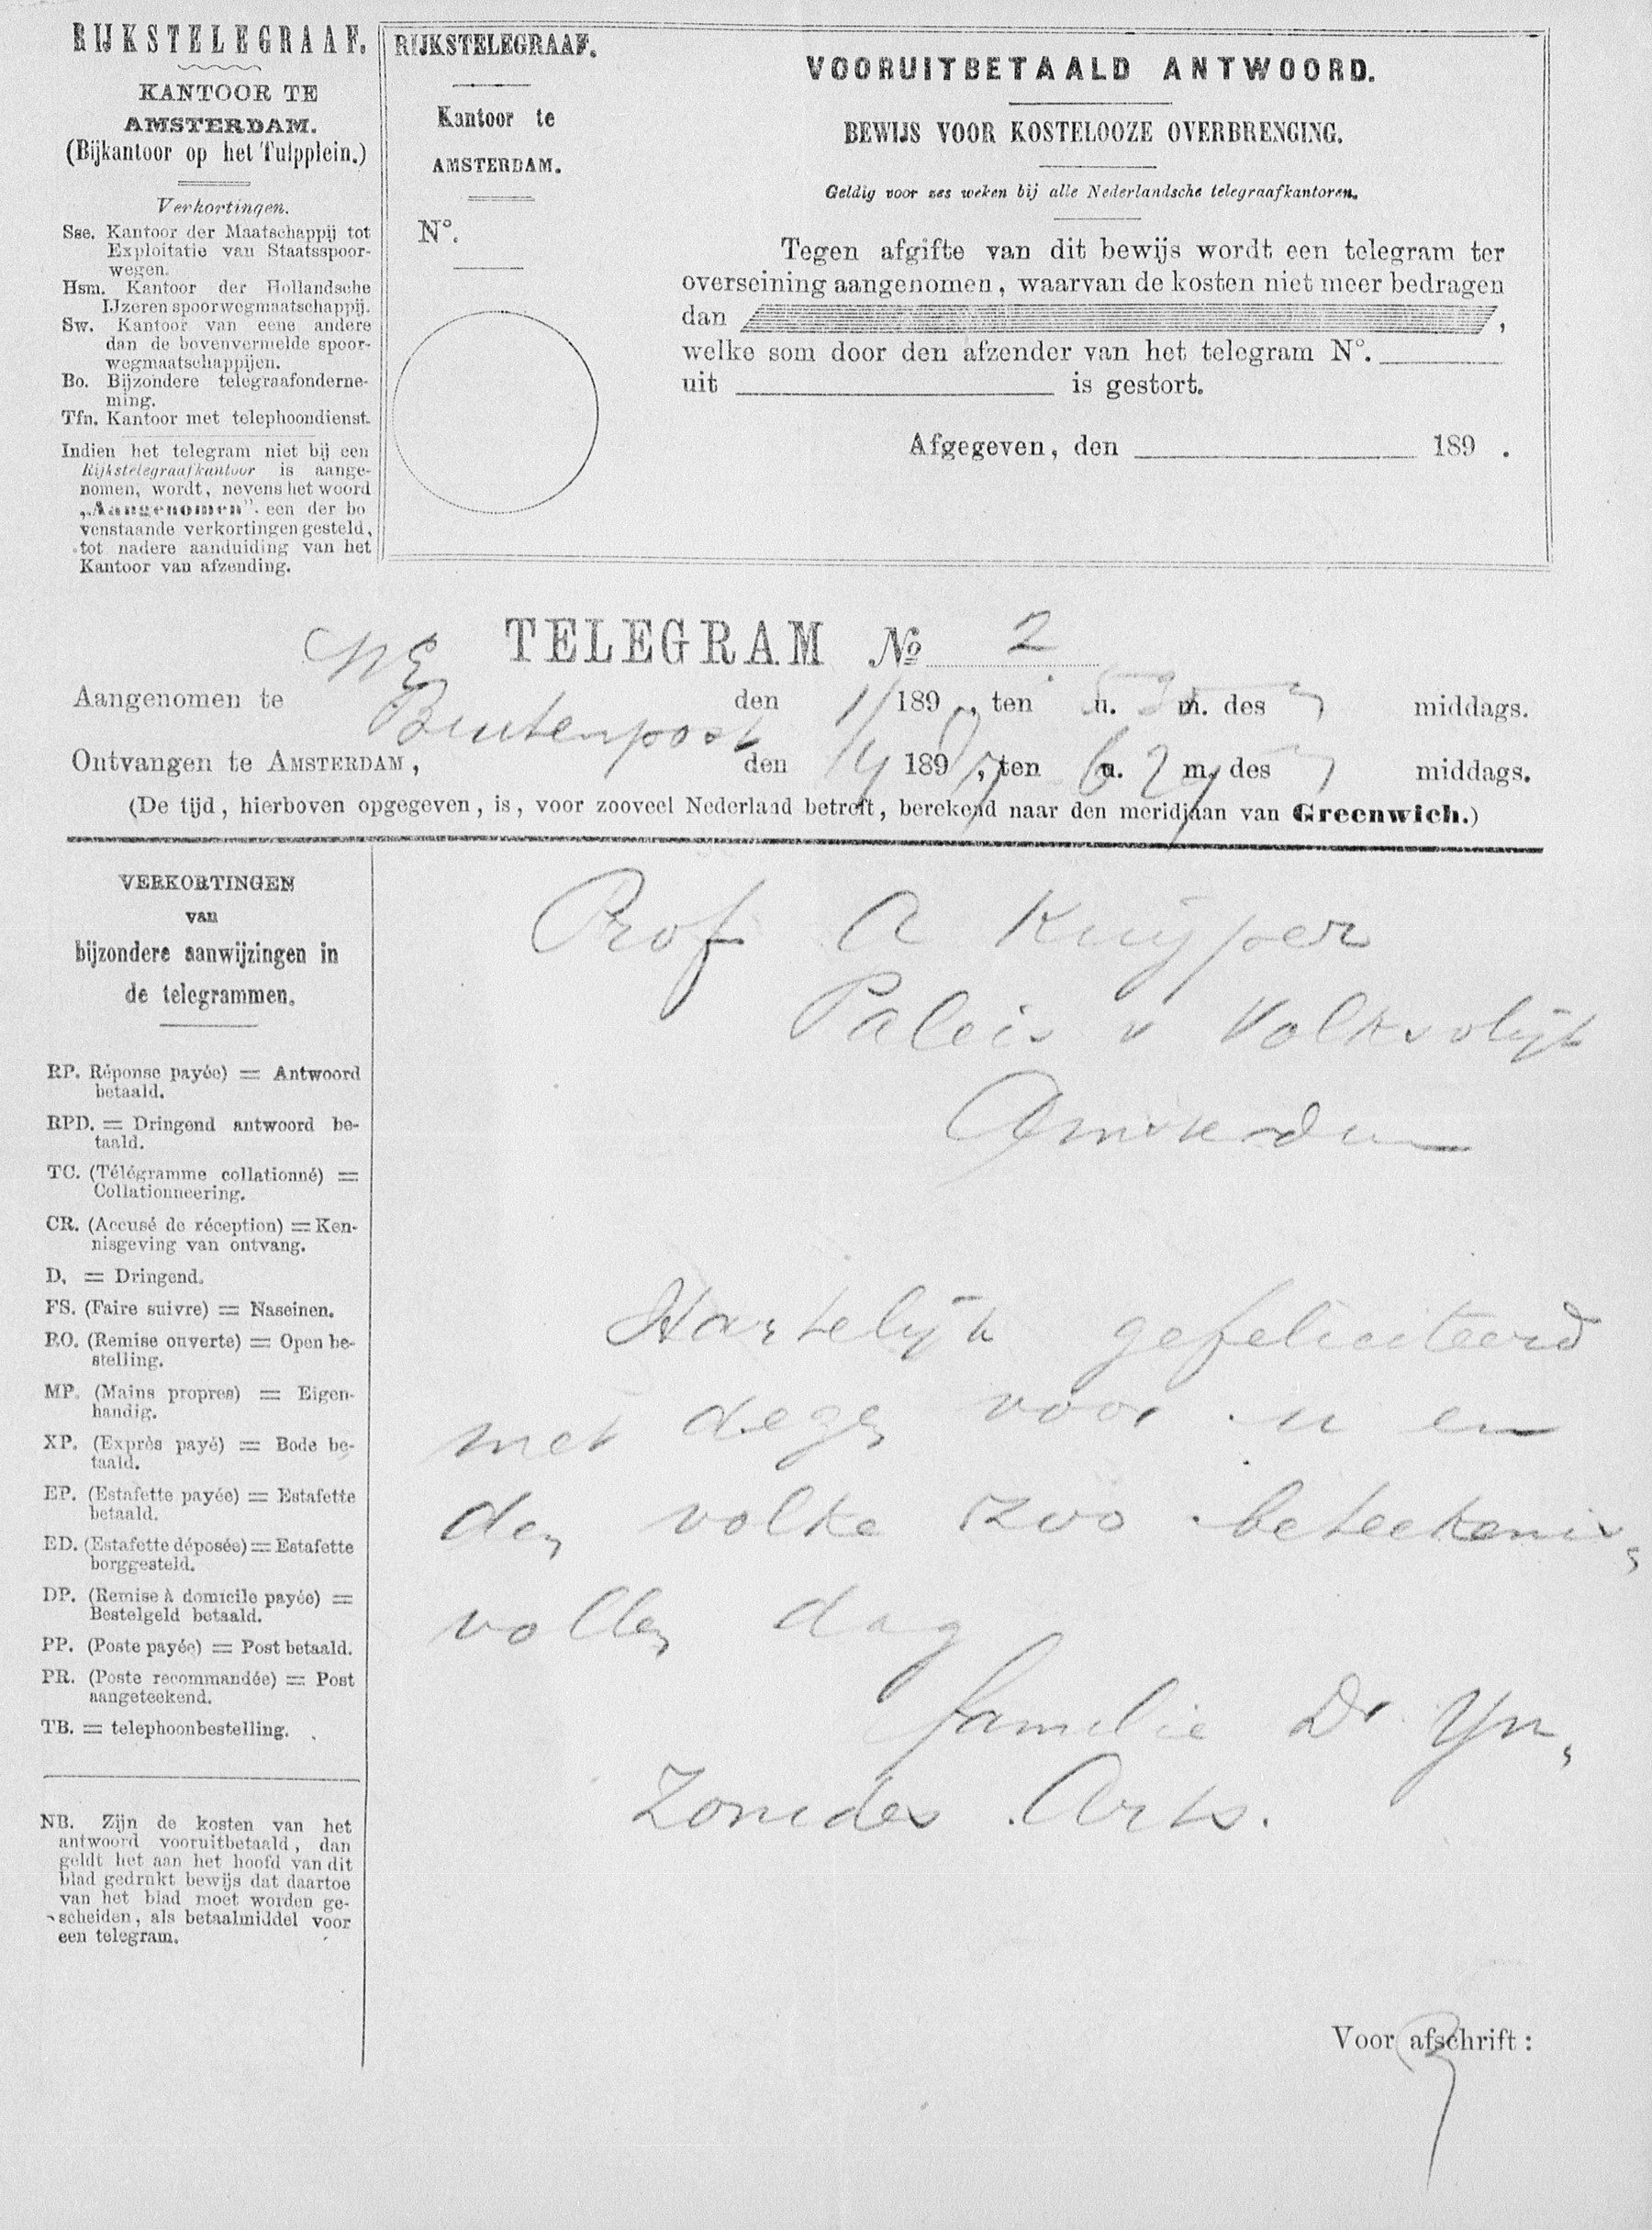 RIJKSTELEGRAAF.
KANTOOR TE
AMSTERDAM.
(Bijkantoor op het Tulpplein.)
Verkortingen.
Sse. Kantoor der Maatschappij tot
Exploitatie van Staatsspoor-
wegen.
Hsm. Kantoor der Hollandsche
IJzeren spoorwegmaatschappij.
Sw. Kantoor van eene andere
dan de bovenvermelde spoor-
wegmaatschappijen.
Bo. Bijzondere telegraafonderne-
ming.
Tfn. Kantoor met telephoondienst.
Indien het telegram niet bij een
Rijkstelegraafkantoor is aange-
nomen, wordt, nevens het woord
„Aangenomen". een der bo
venstaande verkortingen gesteld,
tot nadere aanduiding van het
Kantoor van afzending.
RIJKSTELEGRAAF.
Kantoor te
AMSTERDAM.
N°.
VOORUITBETAALD ANTWOORD.
BEWIJS VOOR KOSTELOOZE OVERBRENGING.
Geldig voor zes weken bij alle Nederlandsche telegraafkantoren.
Tegen afgifte van dit bewijs wordt een telegram ter
overseining aangenomen, waarvan de kosten niet meer bedragen
dan ,
welke som door den afzender van het telegram N°.
uit is gestort.
Afgegeven, den 189 .
TELEGRAM No 2
Aangenomen te Buitenpost den 1/ 189 , ten u. m. des middags.
Ontvangen te AMSTERDAM, den 1/4 1897, ten 6 u. 2 m. des middags.
(De tijd, hierboven opgegeven, is, voor zooveel Nederland betreft, berekend naar den meridiaan van Greenwich.)
VERKORTINGEN
van
bijzondere aanwijzingen in
de telegrammen.
RP. Réponse payée) = Antwoord
betaald.
RPD. = Dringend antwoord be-
taald.
TC. (Télégramme collationné) =
Collationneering.
CR. (Accusé de réception) = Ken-
nisgeving van ontvang.
D. = Dringend.
FS. (Faire suivre) = Naseinen.
RO. (Remise ouverte) = Open be-
stelling.
MP. (Mains propres) = Eigen-
handig.
XP. (Exprès payé) = Bode be-
taald.
EP. (Estafette payée) = Estafette
betaald.
ED. (Estafette déposée) = Estafette
borggesteld.
DP. (Remise à domicile payée) =
Bestelgeld betaald.
PP. (Poste payée) = Post betaald.
PR. (Poste recommandée) = Post
aangeteekend.
TB. = telephoonbestelling.
NB. Zijn de kosten van het
antwoord vooruitbetaald, dan
geldt het aan het hoofd van dit
blad gedrukt bewijs dat daartoe
van het blad moet worden ge-
scheiden, als betaalmiddel voor
een telegram.
Prof A Kuijper
Paleis v Volksvlijt
Amsterdam
Hartelijk gefeliciteerd
met dezen voor u en
den volke zoo beteekenis,
vollen dag
familie Dr Yn,
Zonides Arts.
Voor afschrift: